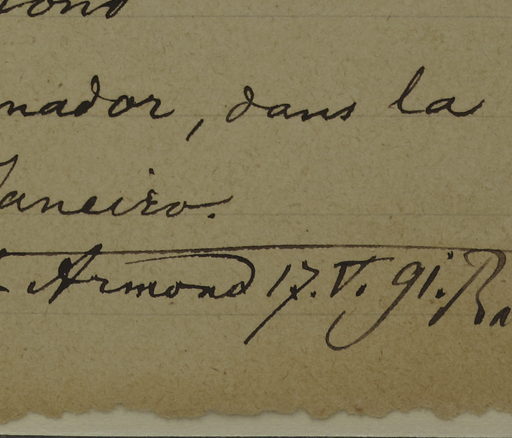 nador, dans la
Janeiro.
Armond 17. V. 91.